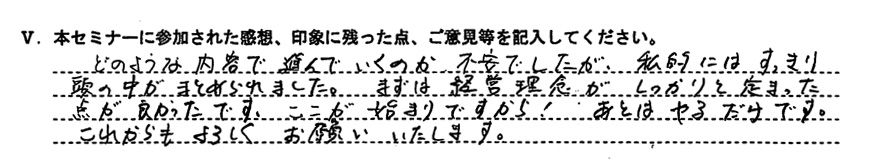 V. 本セミナーに参加された感想、印象に残った点、ご意見等を記入してください。
どのような内容で進んでいくのか不安でしたが、私的にはすっきり
頭の中がまとめられました。まずは経営理念がしっかりと定まった
点が良かったです。ここが始まりですから！あとはやるだけです。
これからもよろしくお願いいたします。